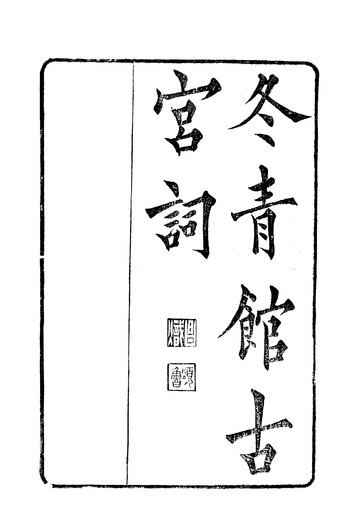 冬青館古
宮詞